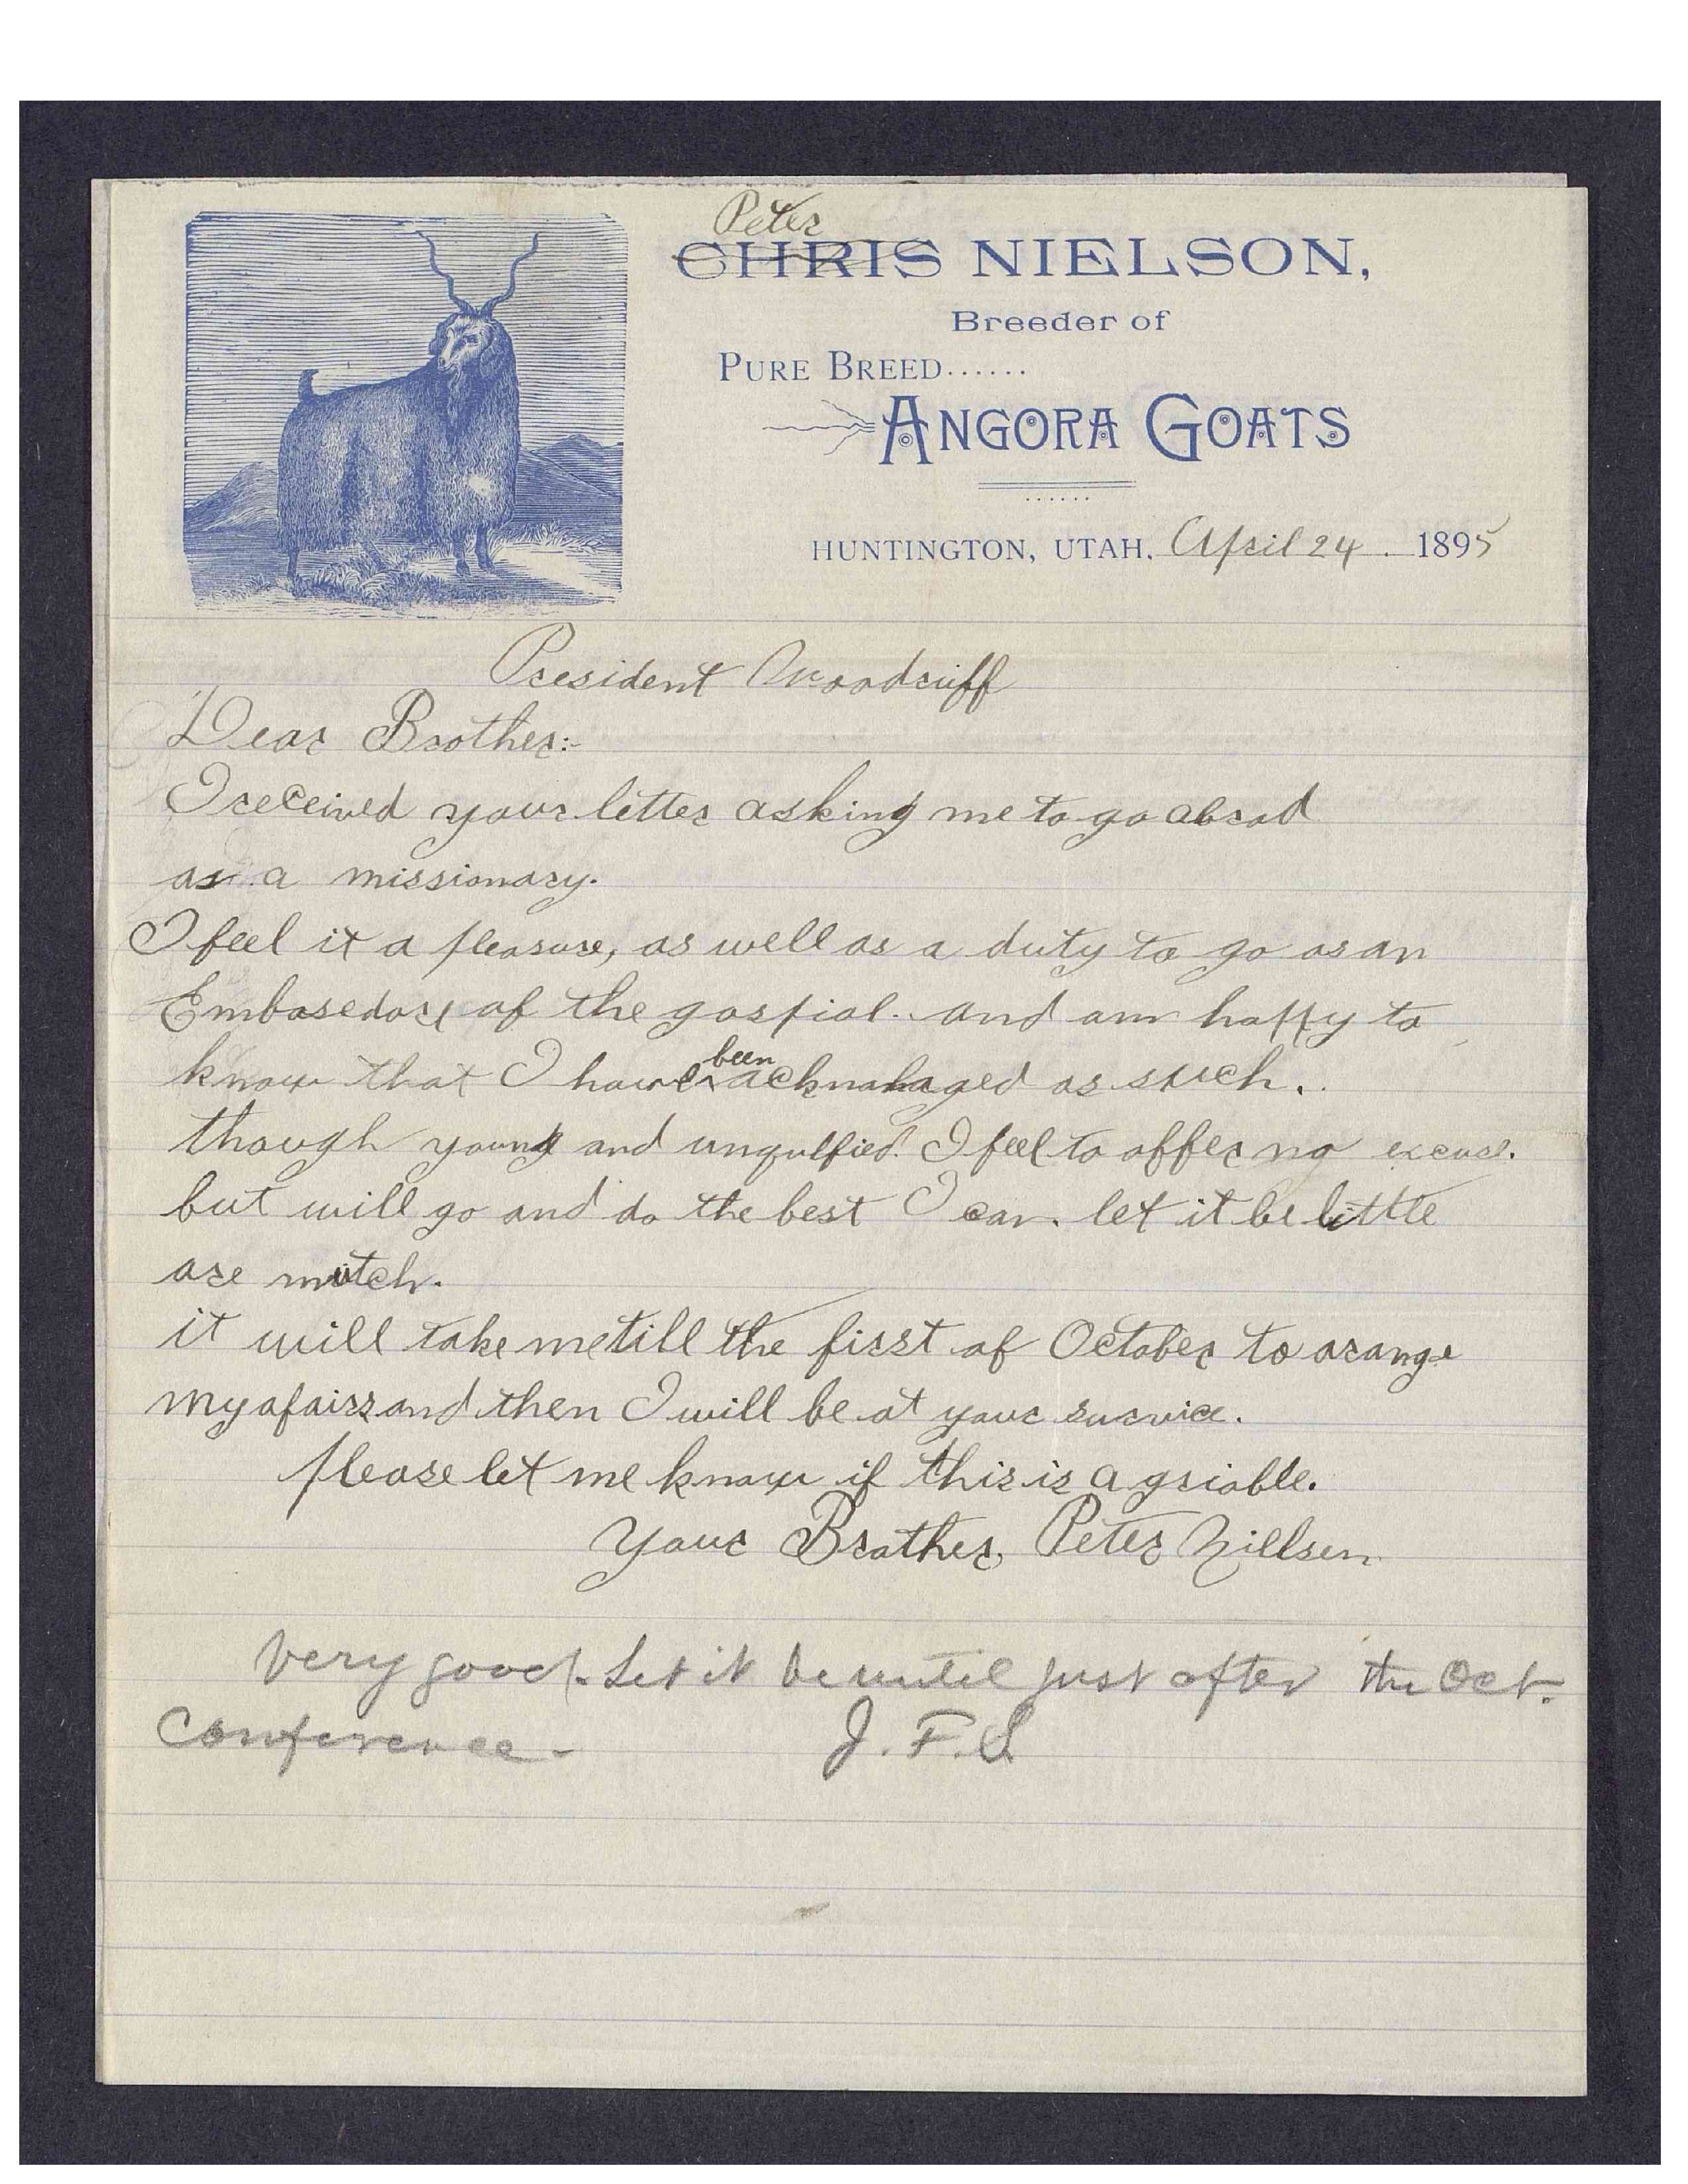 Peter
CHRIS NIELSON,
Breeder of
PURE BREED......
ANGORA GOATS
HUNTINGTON, UTAH, April 24. 1895
President Woodruff
Dear Brother:-
I received your letter asking me to go abrod
as a missionary.
I feel it a pleasure, as well as a duty to go as an
Embasedory of the gospial. and am happy to
know that I have been acknolaged as such.
though young and unqulfied. I feel to offer no excuse.
but will go and do the best I can. let it be little
are mutch.
it will take me till the first of October to arange
my afairs and then I will be at your survice.
please let me know if this is agriable.
Your Brother, Peter Nillsen
Very good. Let it be until just after the Oct.
Conference - J. F. S